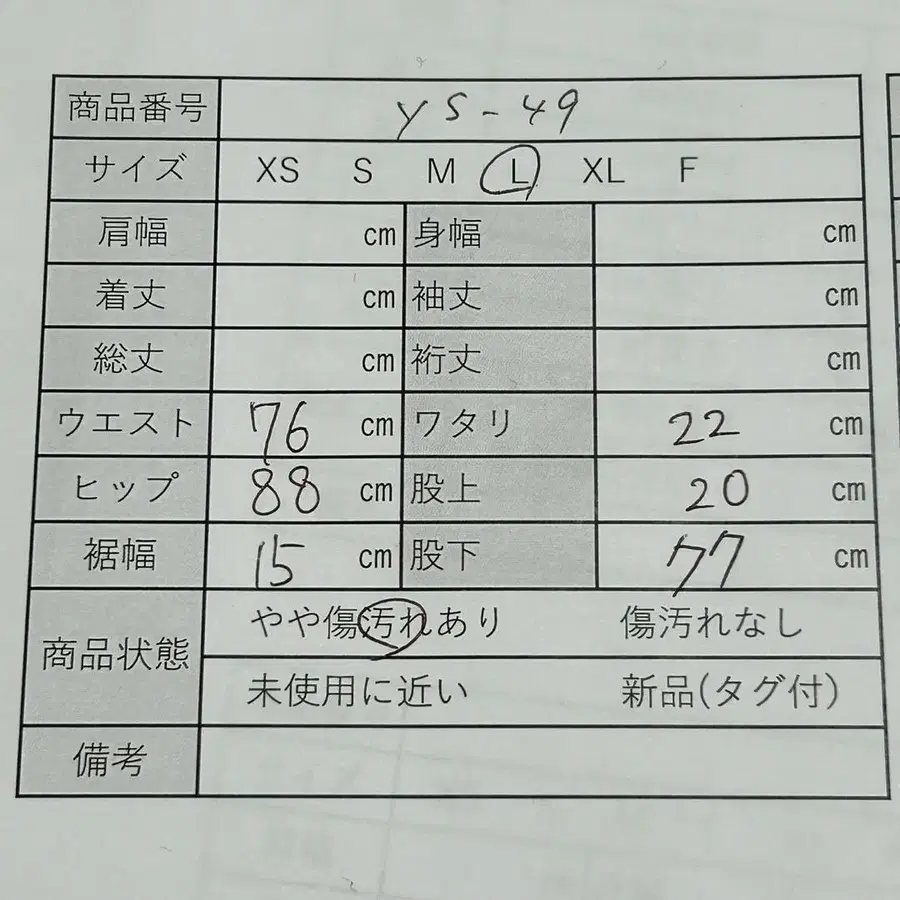 商品番号 YS-49
サイズ XS S M L XL F
肩幅 cm 身幅 cm
着丈 cm 袖丈 cm
総丈 cm 裄丈 cm
ウエスト 76 cm ワタリ 22 cm
ヒップ 88 cm 股上 20 cm
裾幅 15 cm 股下 77 cm
商品状態 やや傷汚れあり 傷汚れなし
未使用に近い 新品(タグ付)
備考